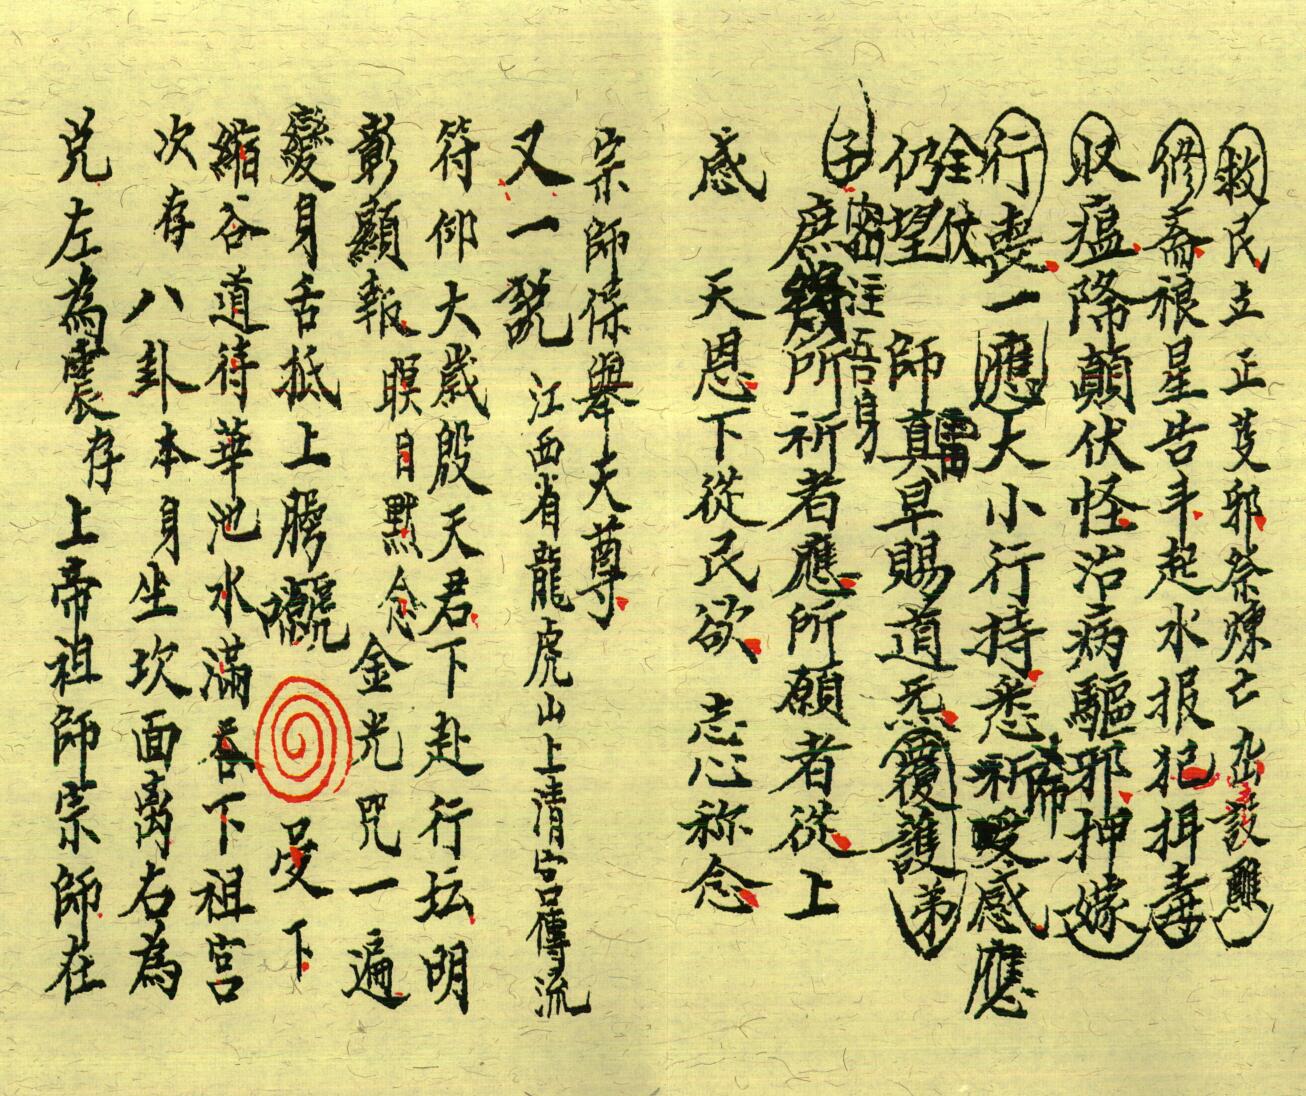 救民立正芟邪祭煉亡 設醮
修斋禳星告斗起水报犯揖毒
収瘟降顛伏怪治病驅邪押嫁
行喪一應大小行持悉祈 感應
全仗雷
仍望師真早賜道炁覆護弟
子密注吾身
庶 所祈者應所願者從上
感天恩下從民欲志心称念
宗師保舉天尊
又一說江西省龍虎山上清宫傳流
符仰大歲殷天君下赴行坛明
彰顯報瞑目默念金光咒一遍
變身舌抵上腭 受下
縮谷道待華池水滿吞下祖宫
次存八卦本身坐坎面离右為
兑左為震存上帝祖師宗師在